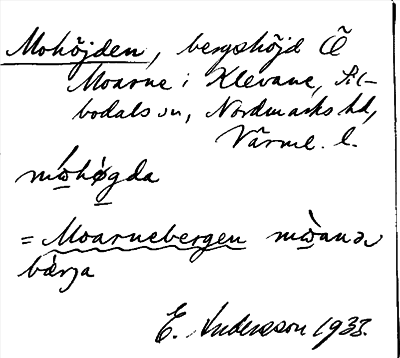 Mohöjden, bergshöjd Ö
Moarne i Klevane, Sil-
bodals sn, Nordmarks hd,
Värml. l.
mωhøgda
= Moarnebergen mωanəv
bærja
E. Andersson 1933.